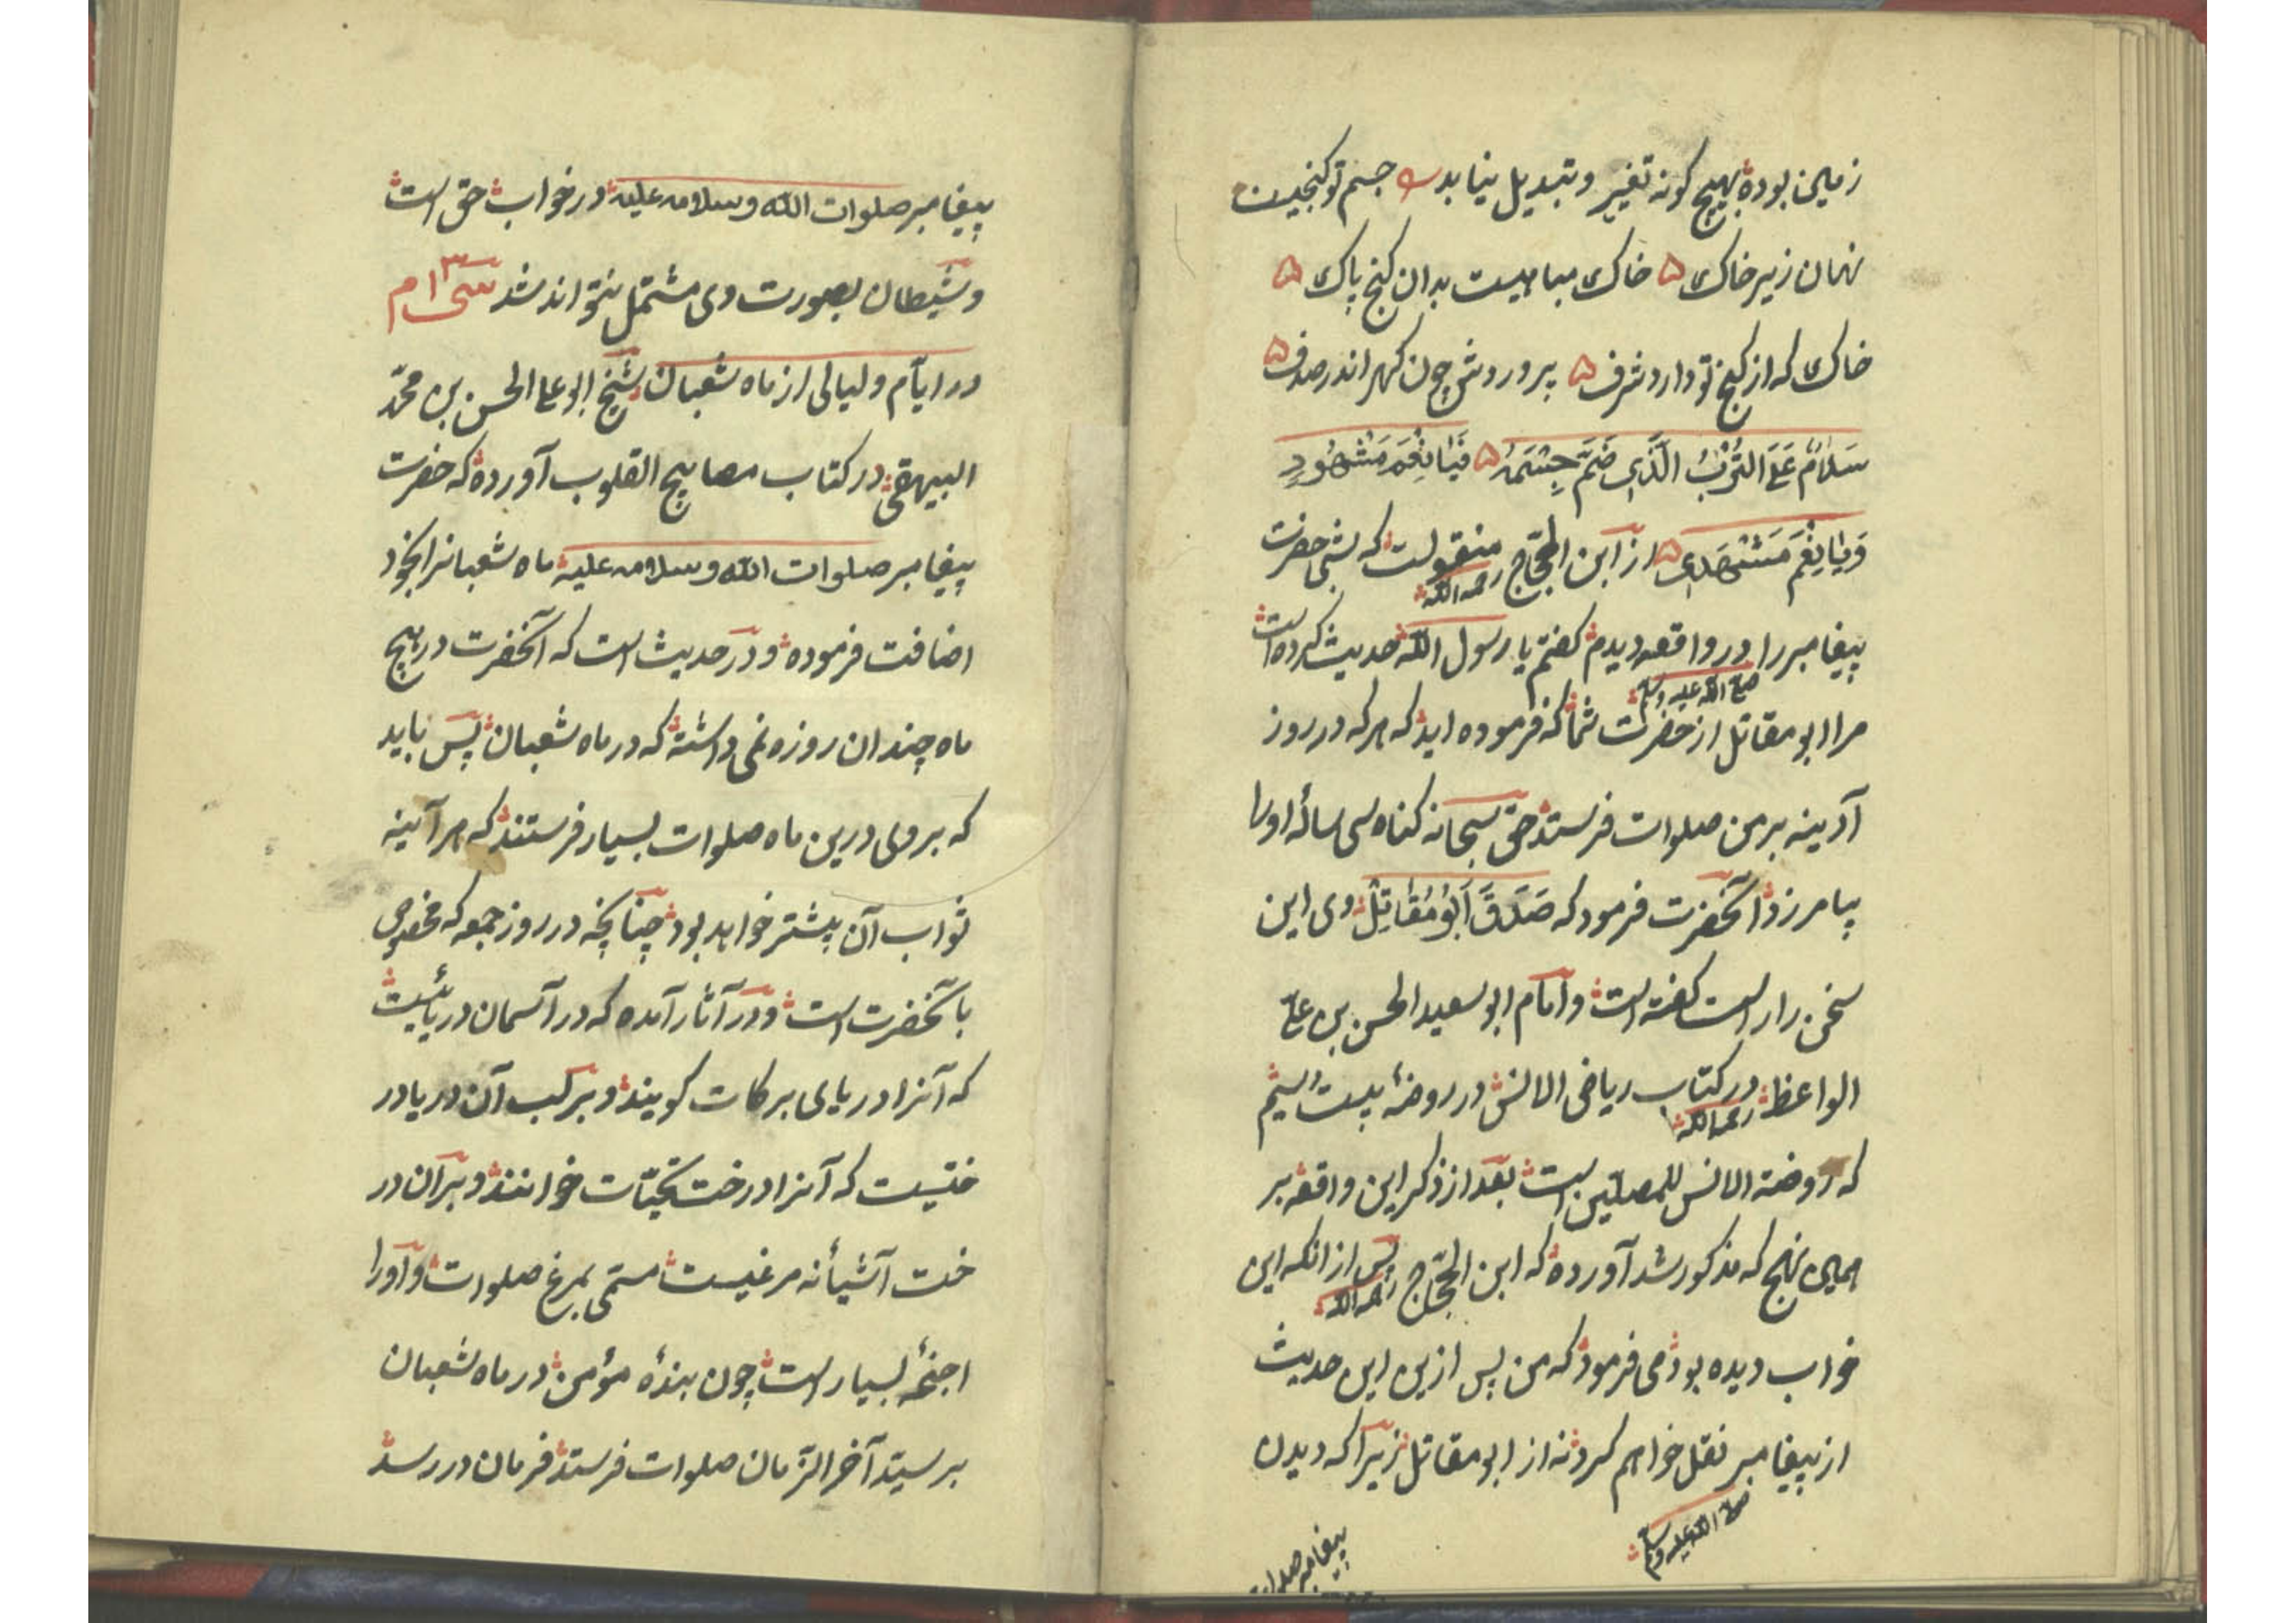 زمین بوده بهیچ کونه تغییر و تبدیل نیابد جسم تو کنجیست
نهان زیر خاک ۵ خاک مباهیست بدان کنج پاک ۵
خاک که از کنج تو دارد شرف ۵ پروردش چون کهر اندر صدف ۵
سَلَامٌ عَلَی التُّرْبُ الَّذِی ضَمَّ جِسْمَهُ ۵ فَیَا نِعْمَ مَشْهُودٍ
وَیَا نِعْمَ مَشْهَدِی ۵ از ابن الحجّاج رحمه الله منقولست که شبی حضرت
پیغامبر را صلی الله علیه وسلم در واقعه دیدم کفتم یا رسول الله حدیث کرده است
مرا ابو مقاتل از حضرت شما که فرموده اید که هر که در روز
آدینه بر من صلوات فرستد حق سبحانه کناه سی ساله اورا
بیامرزد آنحضرت فرمود که صَدَقَ اَبُو مُقَاتِلْ وی این
سخن را راست کفته است و امام ابو سعید الحسن بن علی
الواعظ رحمه الله در کتاب ریاض الانس در روضهٔ بیست و سیم
که روضة الانس للمصلین است بعد از ذکر این واقعه بر
همین نهج که مذکور شد آورده که ابن الحجّاج رحمه الله پس از انکه این
خواب دیده بود می فرمود که من پس ازین این حدیث
از پیغامبر صلی الله علیه وسلم نقل خواهم کرد نه از ابو مقاتل زیرا که دیدن
پیغامبر صلوات
پیغامبر صلوات الله وسلامه علیه در خواب حق است
و شیطان بصورت وی مشتمل نتواند شد سی ۳ ام
در ایّام و لیالی از ماه شعبان شیخ ابو علی الحسن بن محمّد
البیهقی در کتاب مصابیح القلوب آورده که حضرت
پیغامبر صلوات الله وسلامه علیه ماه شعبانرا بخود
اضافت فرموده و در حدیث است که آنحضرت در هیچ
ماه چندان روزه نمی داشته که در ماه شعبان پس باید
که بر وی درین ماه صلوات بسیار فرستند که هر آینه
ثواب آن بیشتر خواهد بود چنانچه در روز جمعه که مخصوص
بآنحضرت است و در آثار آمده که در آسمان دریائیست
که آنرا دریای برکات کویند و بر لب آن دریا در
ختیست که آنرا درخت تحیّات خوانند و بر آن در
خت آشیانه مرغیست مسمّی بمرغ صلوات و اورا
اجنحهٔ بسیار است چون بندهٔ مؤمن در ماه شعبان
بر سیّد آخر الزّمان صلوات فرستد فرمان در رسد